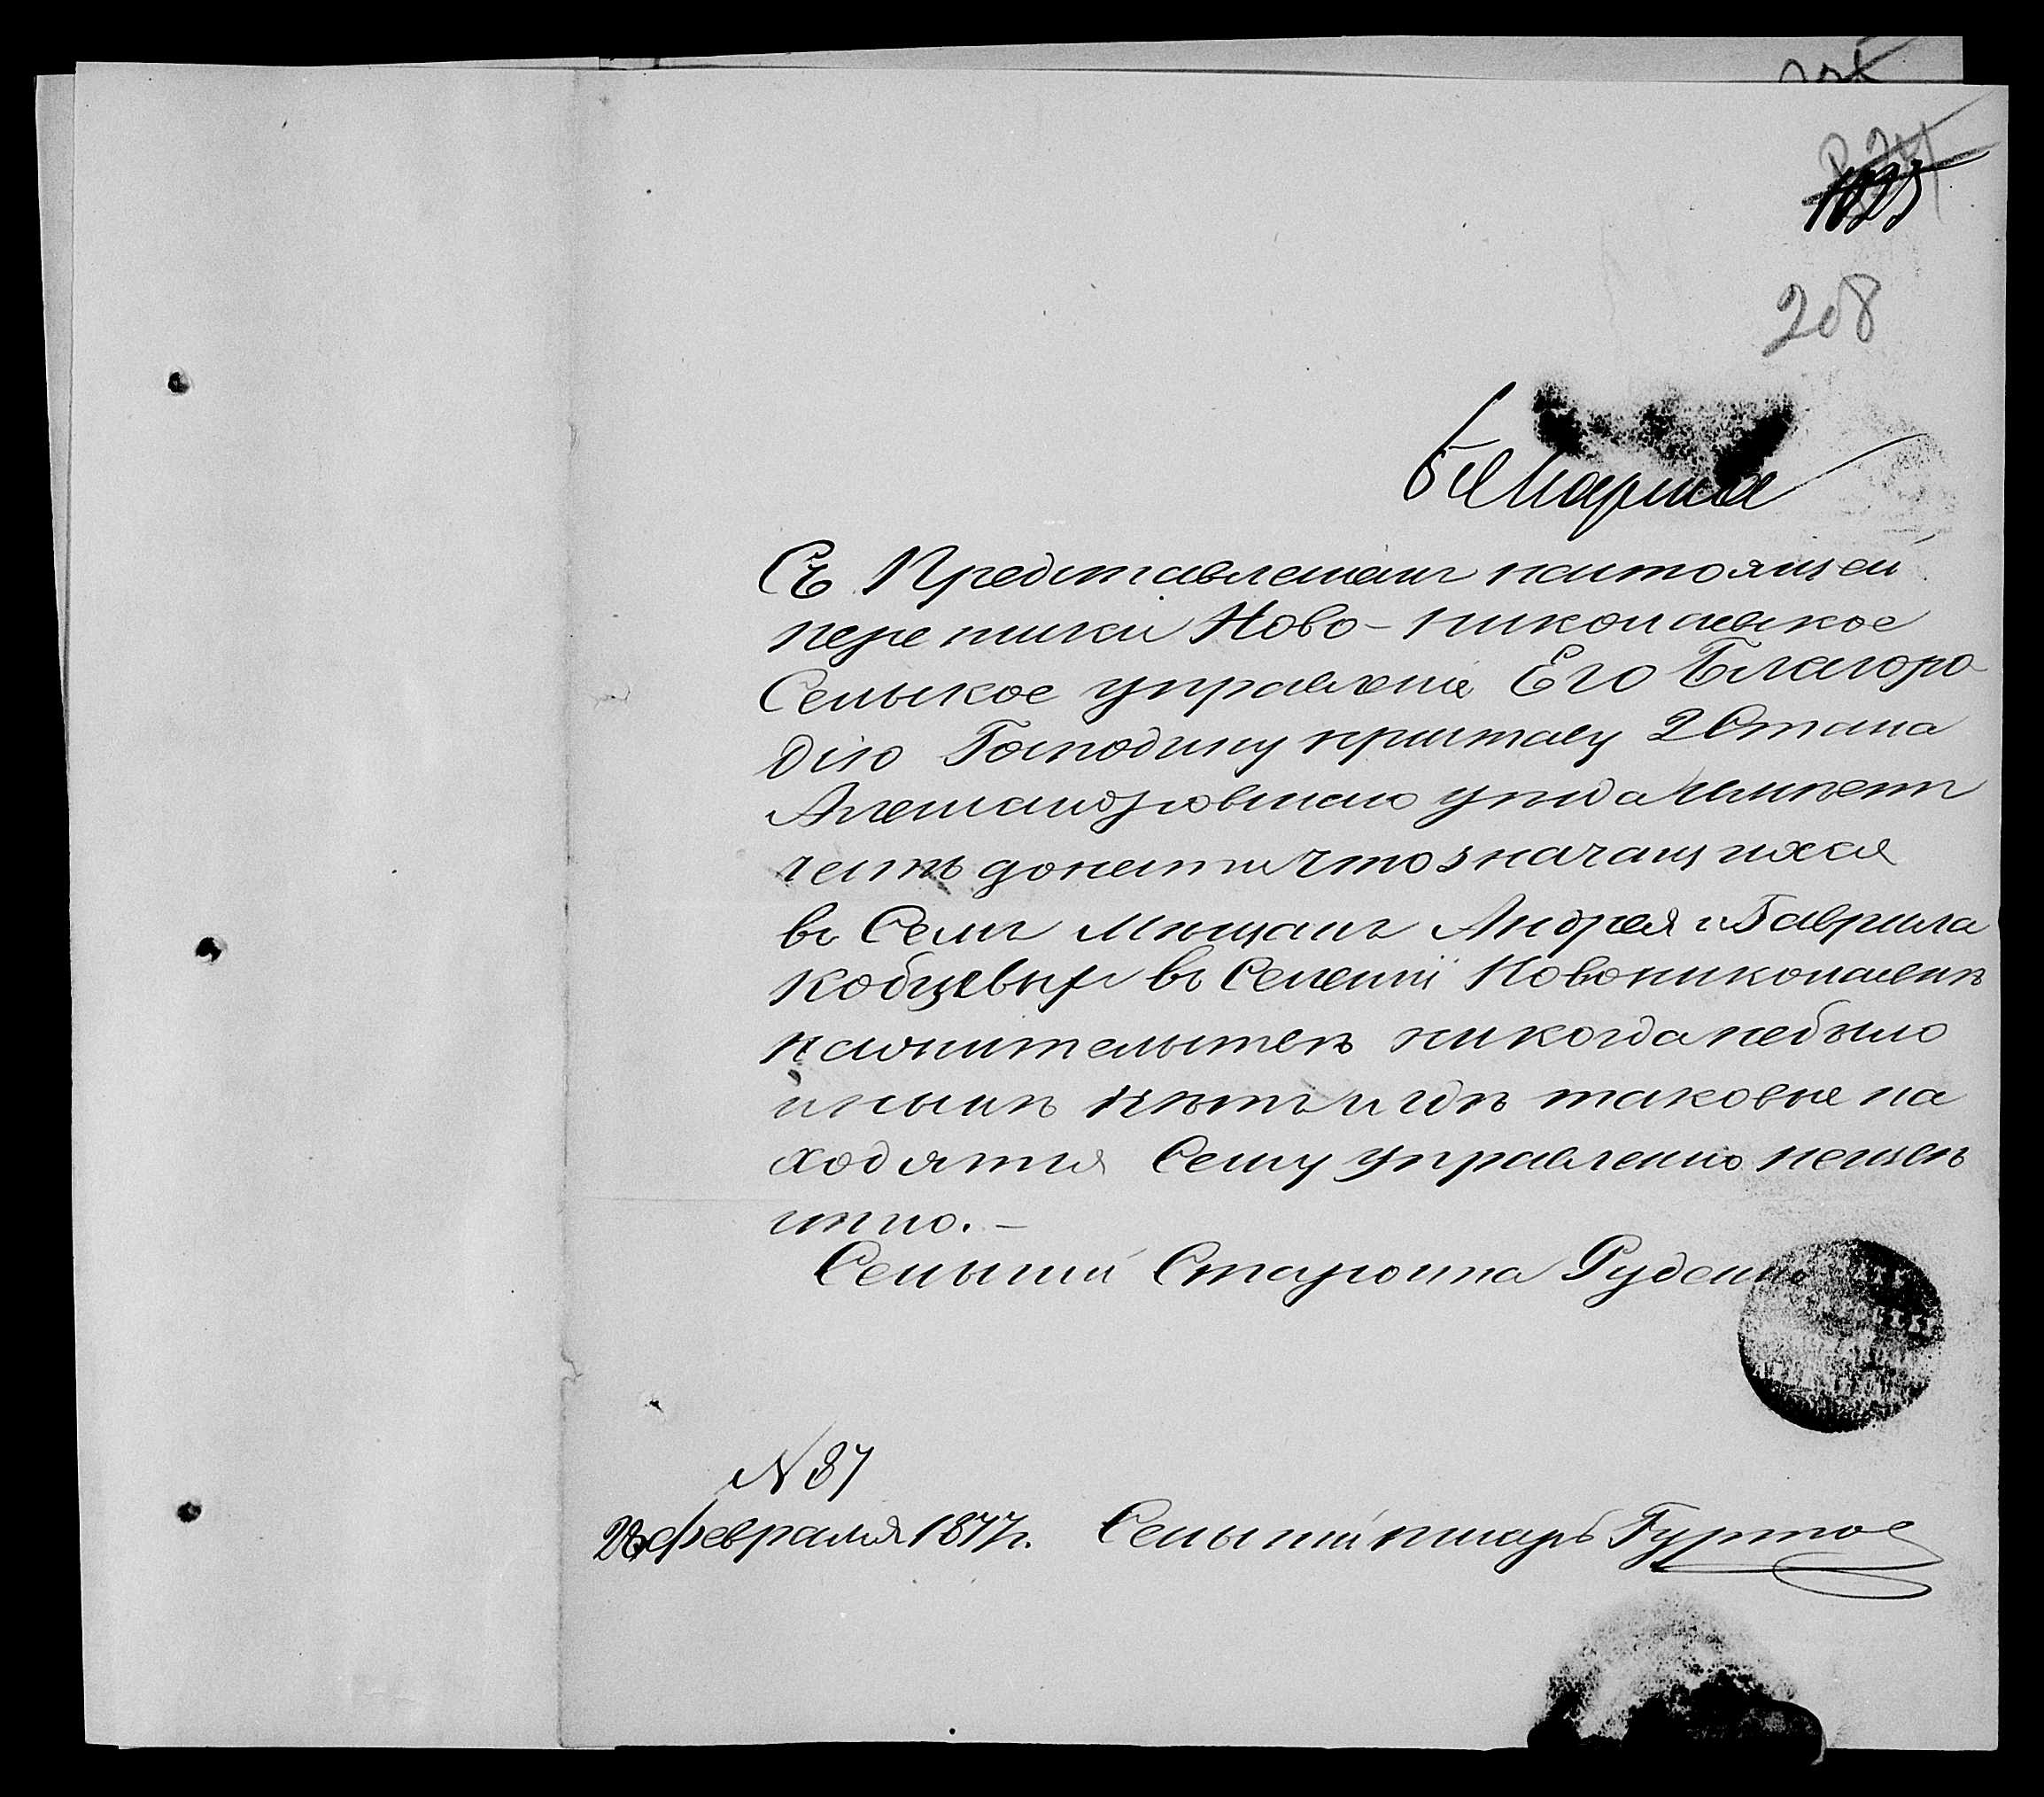 208
6 Марта
Съ Представлениемъ настоящей
переписки Ново-николаевское
Сельское управление Его Благоро-
дію Господину приставу 2 Стана
Александровскаго уезда имѣетъ
честь донести что значащихся
въ Семъ Мѣщанъ Андрея и Гаврила
Кобцевыхъ въ Селеніи Новониколаевкѣ
на жительствѣ никогда небыло
и нынѣ нѣтъ и гдѣ таковые на
ходятся Сему управленію неизвѣ
стно.-
Сельский Староста Руденко
N 87
28 февраля 1877 г. Сельский писарь